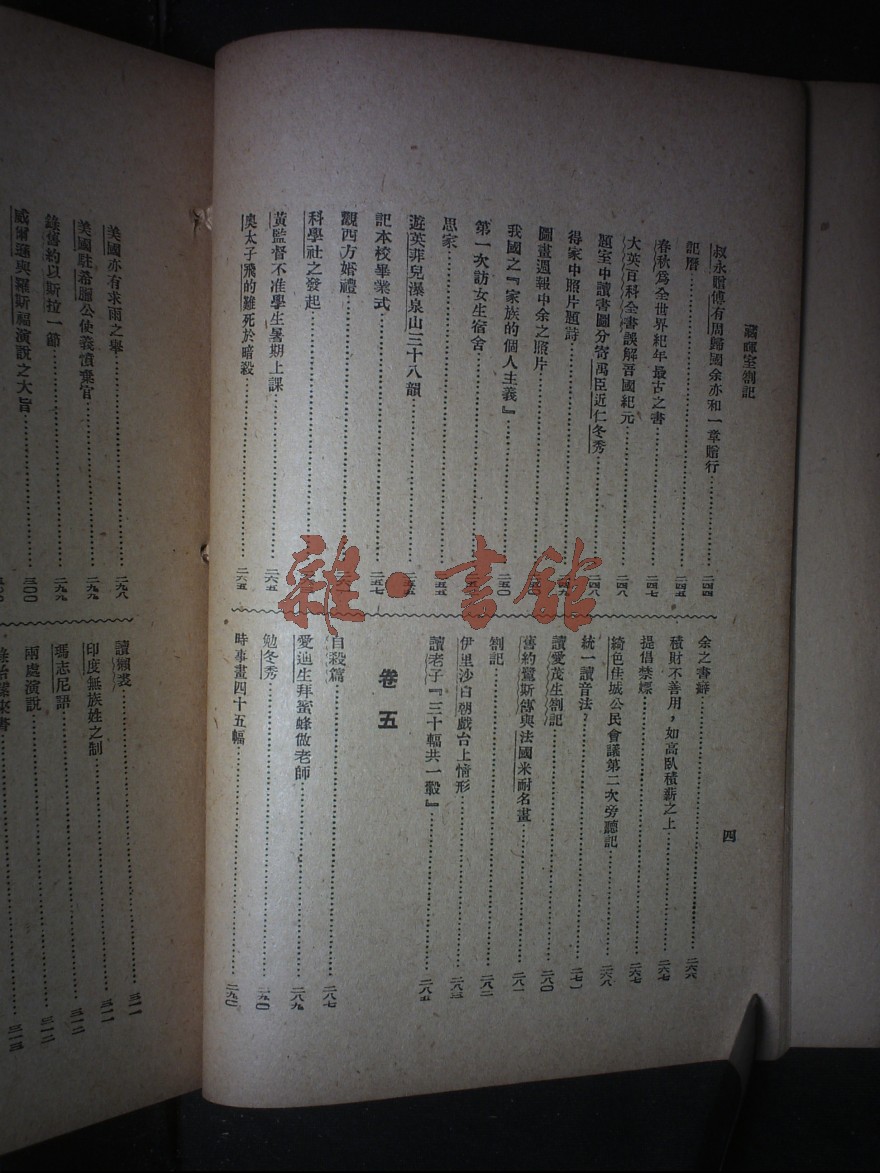 藏暉室劄記
四
叔永贈傅有周歸國余亦和一章贈行 二四四
記曆 二四五
春秋為全世界紀年最古之書 二四七
大英百科全書誤解吾國紀元 二四八
題室中讀書圖分寄禹臣近仁冬秀 二四八
得家中照片題詩 二四九
圖畫週報中余之照片
我國之『家族的個人主義』 二五〇
第一次訪女生宿舍
思家
遊英菲兒瀑泉山三十八韻
記本校畢業式 二五七
觀西方婚禮
科學社之發起
黃監督不准學生暑期上課 二六五
奧太子飛的難死於暗殺 二六五
余之書癖 二六六
積財不善用，如高臥積薪之上 二六七
提倡禁嫖 二六七
綺色佳城公民會議第二次旁聽記 二六八
統一讀音法 二七一
讀愛茂生劄記 二八〇
舊約鷺斯傳與法國米耐名畫 二八一
劄記 二八二
伊里沙白朝戲台上情形 二八三
讀老子『三十輻共一轂』 二八五
卷五
自殺篇 二八七
愛迪生拜蜜蜂做老師 二八九
勉冬秀 二九〇
時事畫四十五幅 二九〇
美國亦有求雨之舉 二九八
美國駐希臘公使義憤棄官 二九九
錄舊約以斯拉一節 二九九
威爾遜與羅斯福演說之大旨 三〇〇
三〇〇
讀獺裘 三一一
印度無族姓之制 三一一
瑪志尼語 三一二
兩處演說 三一二
三一三
雜·書館